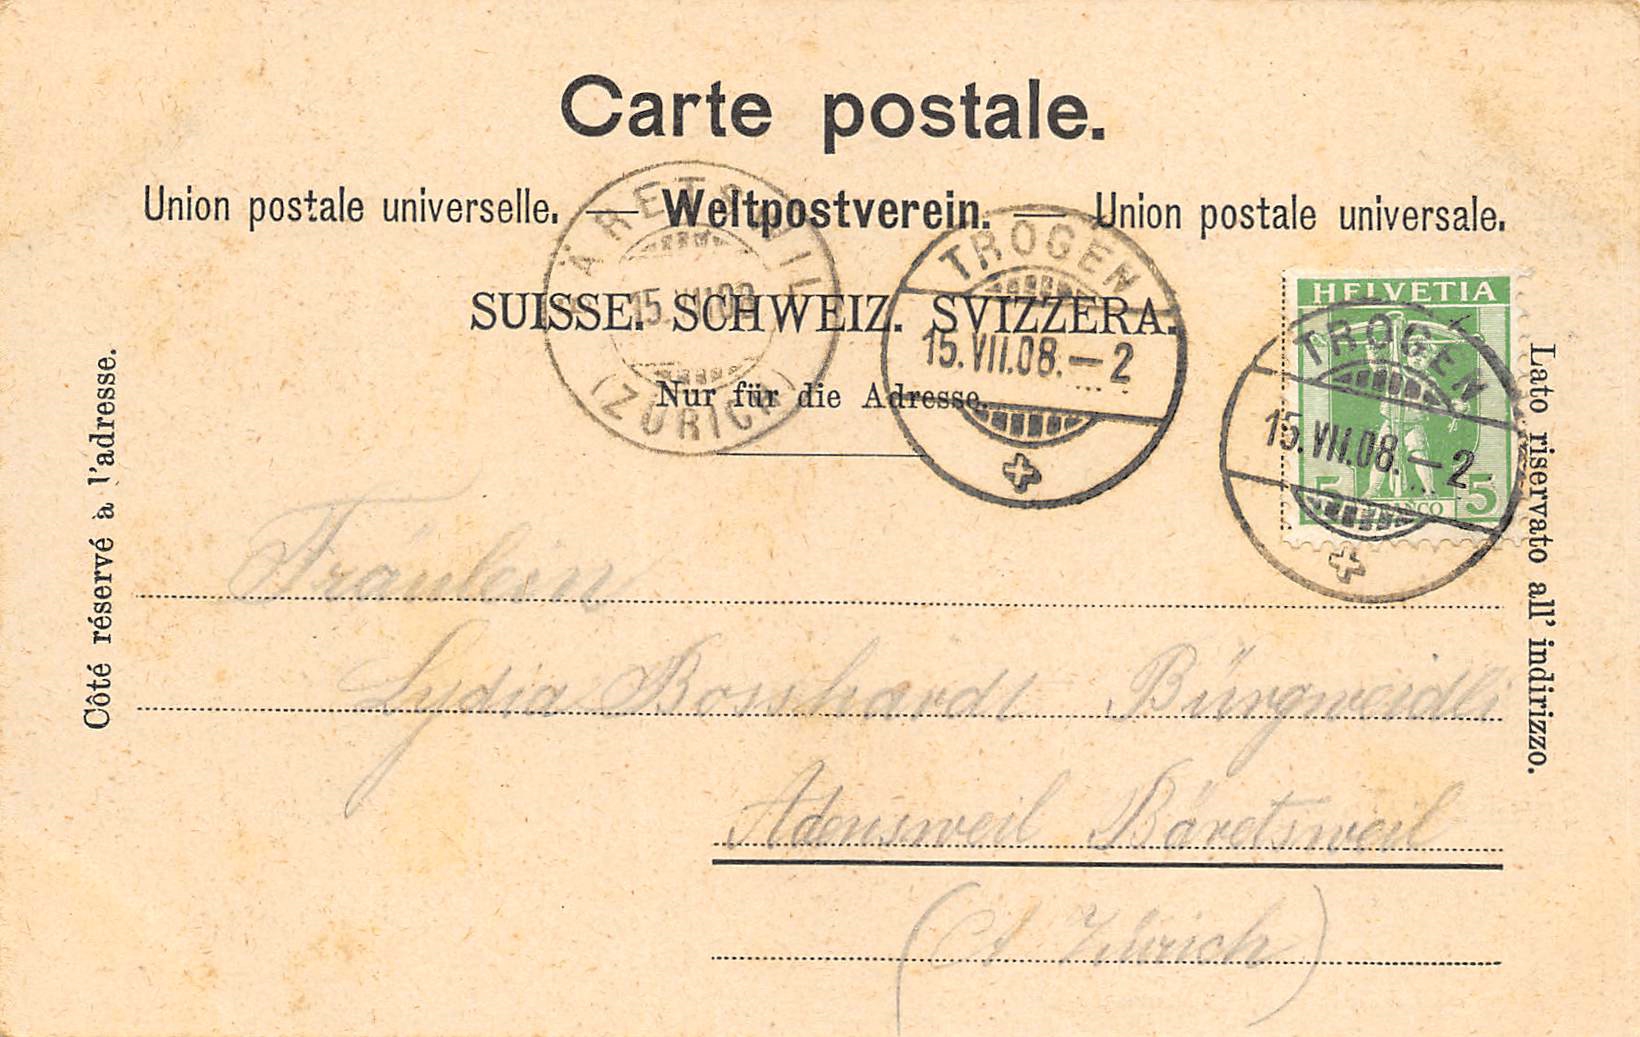 Carte postale.
Union postale universelle. — Weltpostverein. — Union postale universale.
SUISSE. SCHWEIZ. SVIZZERA.
Nur für die Adresse.
Côté réservé à l'adresse.
Lato riservato all' indirizzo.
BÄRETSWIL
15.VII.08
(ZÜRICH)
TROGEN
15.VII.08.—2
HELVETIA
5 FRANCO 5
TROGEN
15.VII.08.—2
Fräulein
Lydia Bosshardt Bürgweidli
Adensweil Bäretsweil
(Ct Zürich)